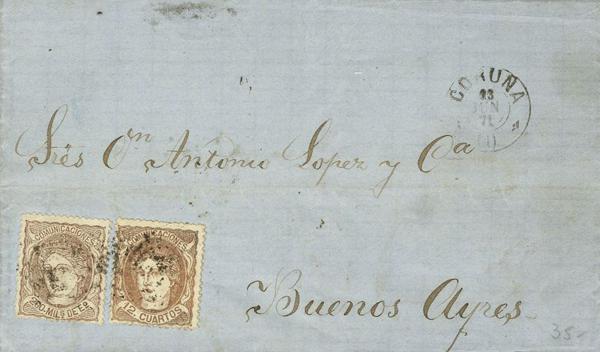 CORUÑA
13
JUN
71
(1)
Srēs Dn Antonio Lopez y Ca
COMUNICACIONES
MILS DE Eo
COMUNICACIONES
12 CUARTOS
Buenos Ayres
35-